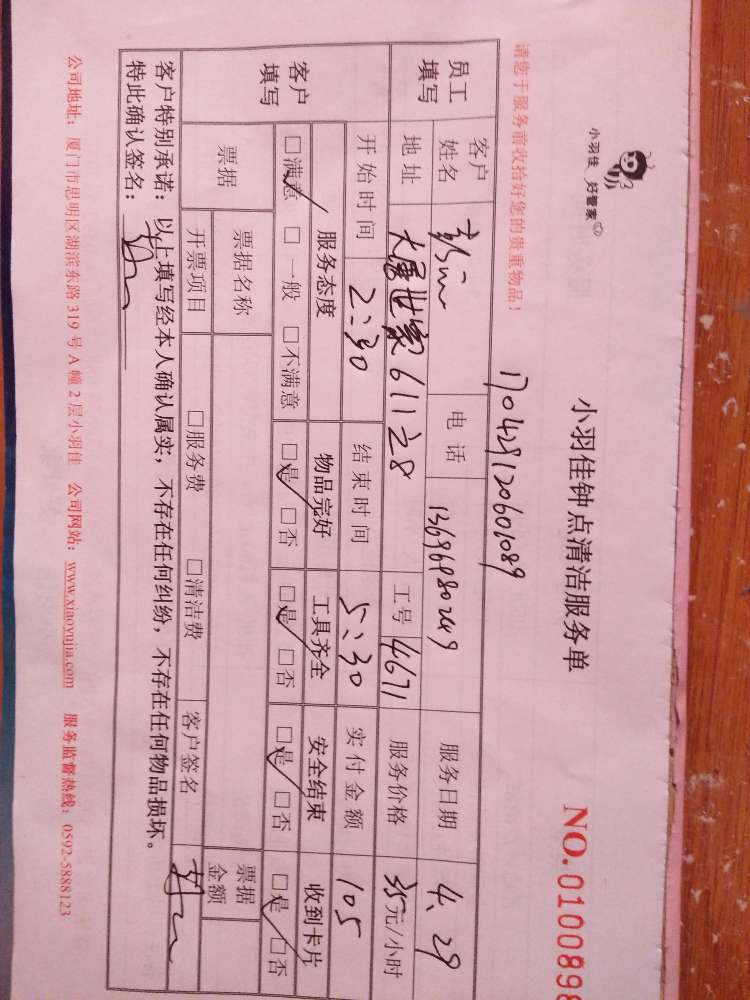 小羽佳 好管家
小羽佳钟点清洁服务单
NO.0100898
请您于服务前收拾好您的贵重物品！
170428120601089
员工填写 客户姓名 电话 服务日期 4.29
地址 大唐世家611之8 工号 4671 服务价格 35元/小时
开始时间 2:30 结束时间 5:30 实付金额 105
客户填写 服务态度 物品完好 工具齐全 安全结束 收到卡片
□满意 □一般 □不满意 □是 □否 □是 □否 □是 □否 □是 □否
票据 票据名称 票据金额
开票项目 □服务费 □清洁费 客户签名
客户特别承诺：以上填写经本人确认属实，不存在任何纠纷，不存在任何物品损坏。
特此确认签名：
公司地址：厦门市思明区湖滨东路319号A幢2层小羽佳 公司网站：www.xiaoyujia.com 服务监督热线：0592-5888123